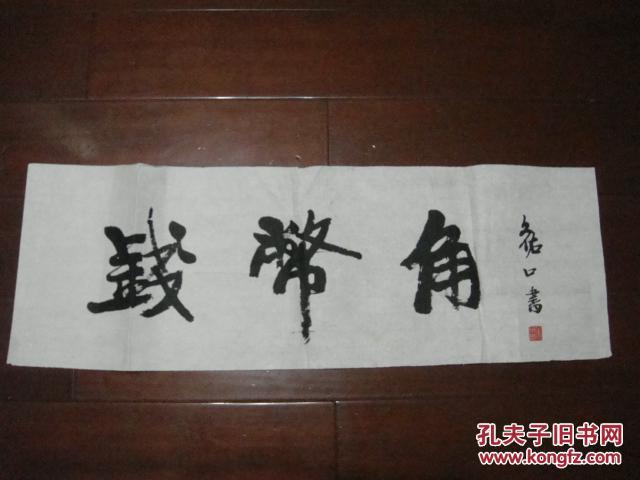 錢幣角
口書
孔夫子旧书网
www.kongfz.com